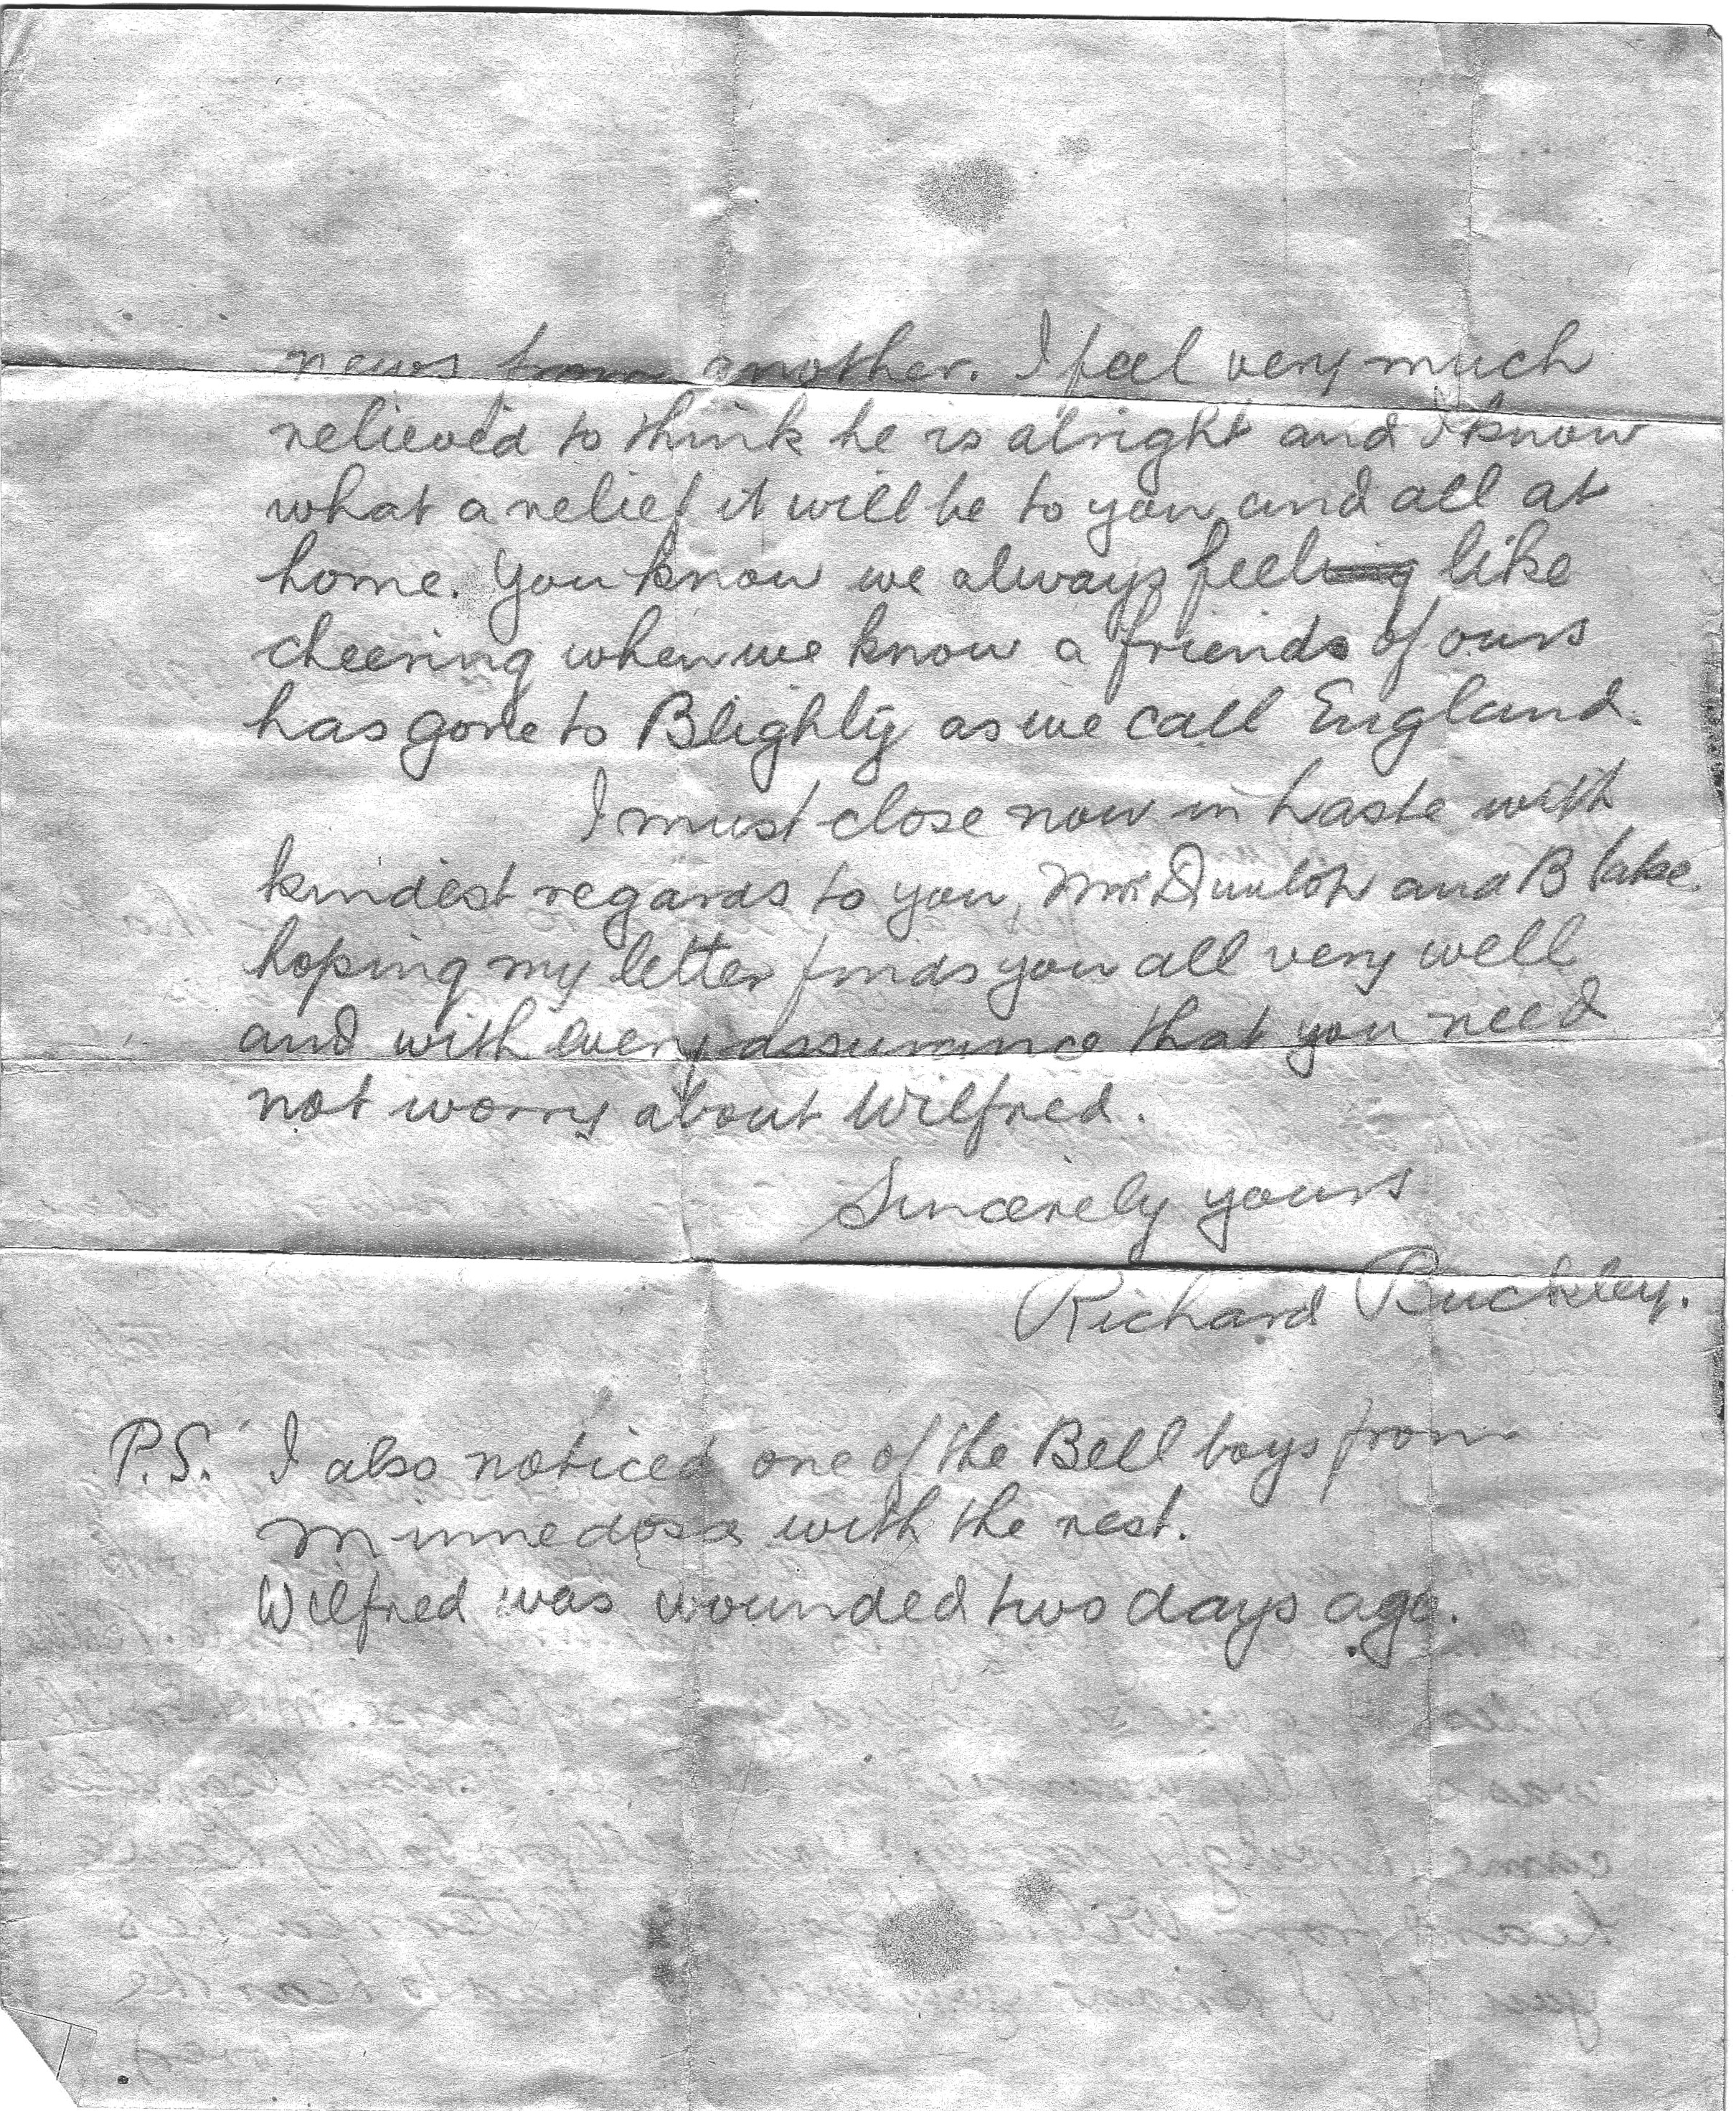 news from another. I feel very much
relieved to think he is alright and I know
what a relief it will be to you and all at
home. You know we always feeling like
cheering when we know a friends of ours
has gone to Blighty as we call England.
I must close now in haste with
kindest regards to you, Mr. Dunlop and Blake.
hoping my letter finds you all very well
and with every assurance that you need
not worry about Wilfred.
Sincerely yours
Richard Buckley.
P.S. I also noticed one of the Bell boys from
Minnedosa with the rest.
Wilfred was wounded two days ago.